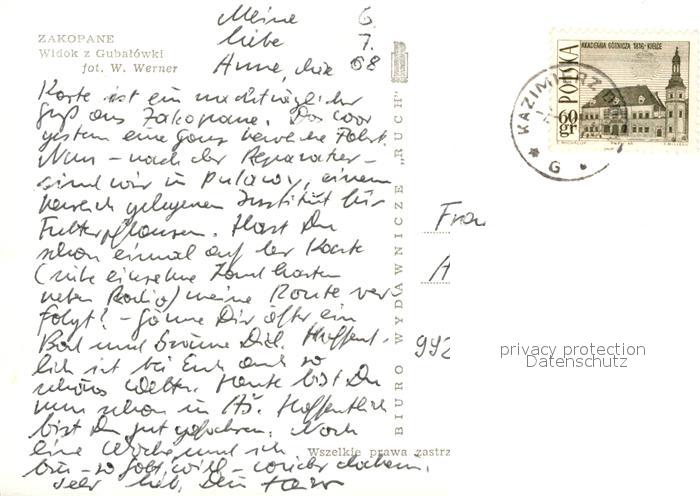 ZAKOPANE
Widok z Gubałówki
fot. W. Werner
Meine 6.
liebe 7.
Anne, die 68
Karte ist ein nachträglicher
Gruß aus Zakopane. Das war
gestern eine ganz Fahrt.
Nun – nach der Reparatur –
sind wir in Pulawy, einem
gelegenen Institut für
Futterpflanzen. Hast Du
schon einmal auf der Karte
(siehe einzelne Landkarten
neben Radio) meine Route ver-
folgt? – Gönne Dir öfter ein
Bad und bräune Dich. Hoffent-
lich ist bei Euch auch so
schönes Wetter. Heute bist Du
nun schon in Hoffentlich
bist Du gut gefahren. Noch
eine Woche und ich
bin – so Gott will – wieder daheim.
Sehr lieb, Dein
BIURO WYDAWNICZE „RUCH"
Wszelkie prawa zastrz
AKADEMIA GÓRNICZA 1816 · KIELCE
POLSKA
60 gr
KAZIMIERZ D
G
Frau
A
992
privacy protection
Datenschutz